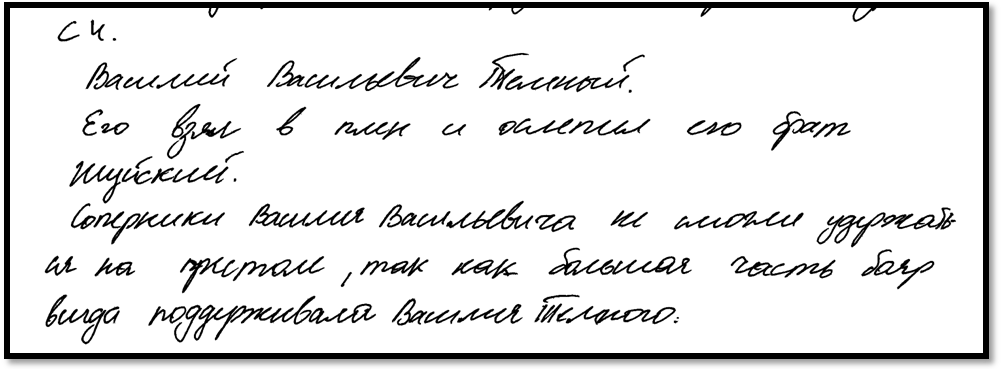 С4.
Василий Васильевич Темный.
Его взял в плен и ослепил его брат
Шуйский.
Соперники Василия Васильевича не смогли удержать-
ся на престоле, так как большая часть бояр
всегда поддерживала Василия Темного.